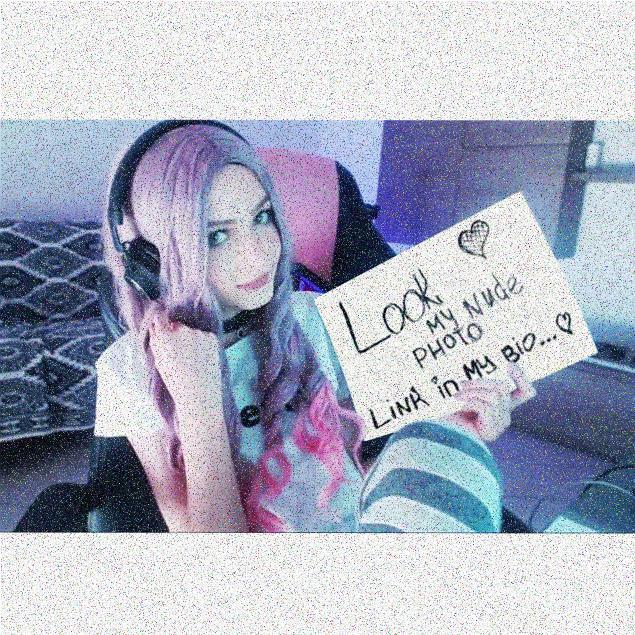 Look
my Nude
PHOTO
Link in My BIO...